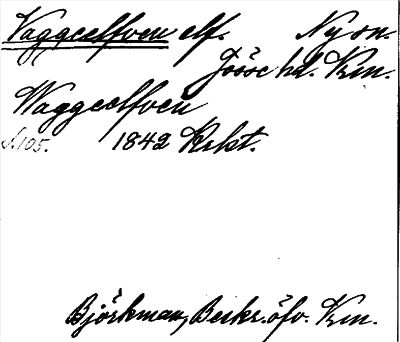 Vaggeelfven elf. Ny sn.
Jösse hd. Vrm.
Waggeelfven
s. 105. 1842 Krkt.
Björkman, Beskr. öfv. Vrm.